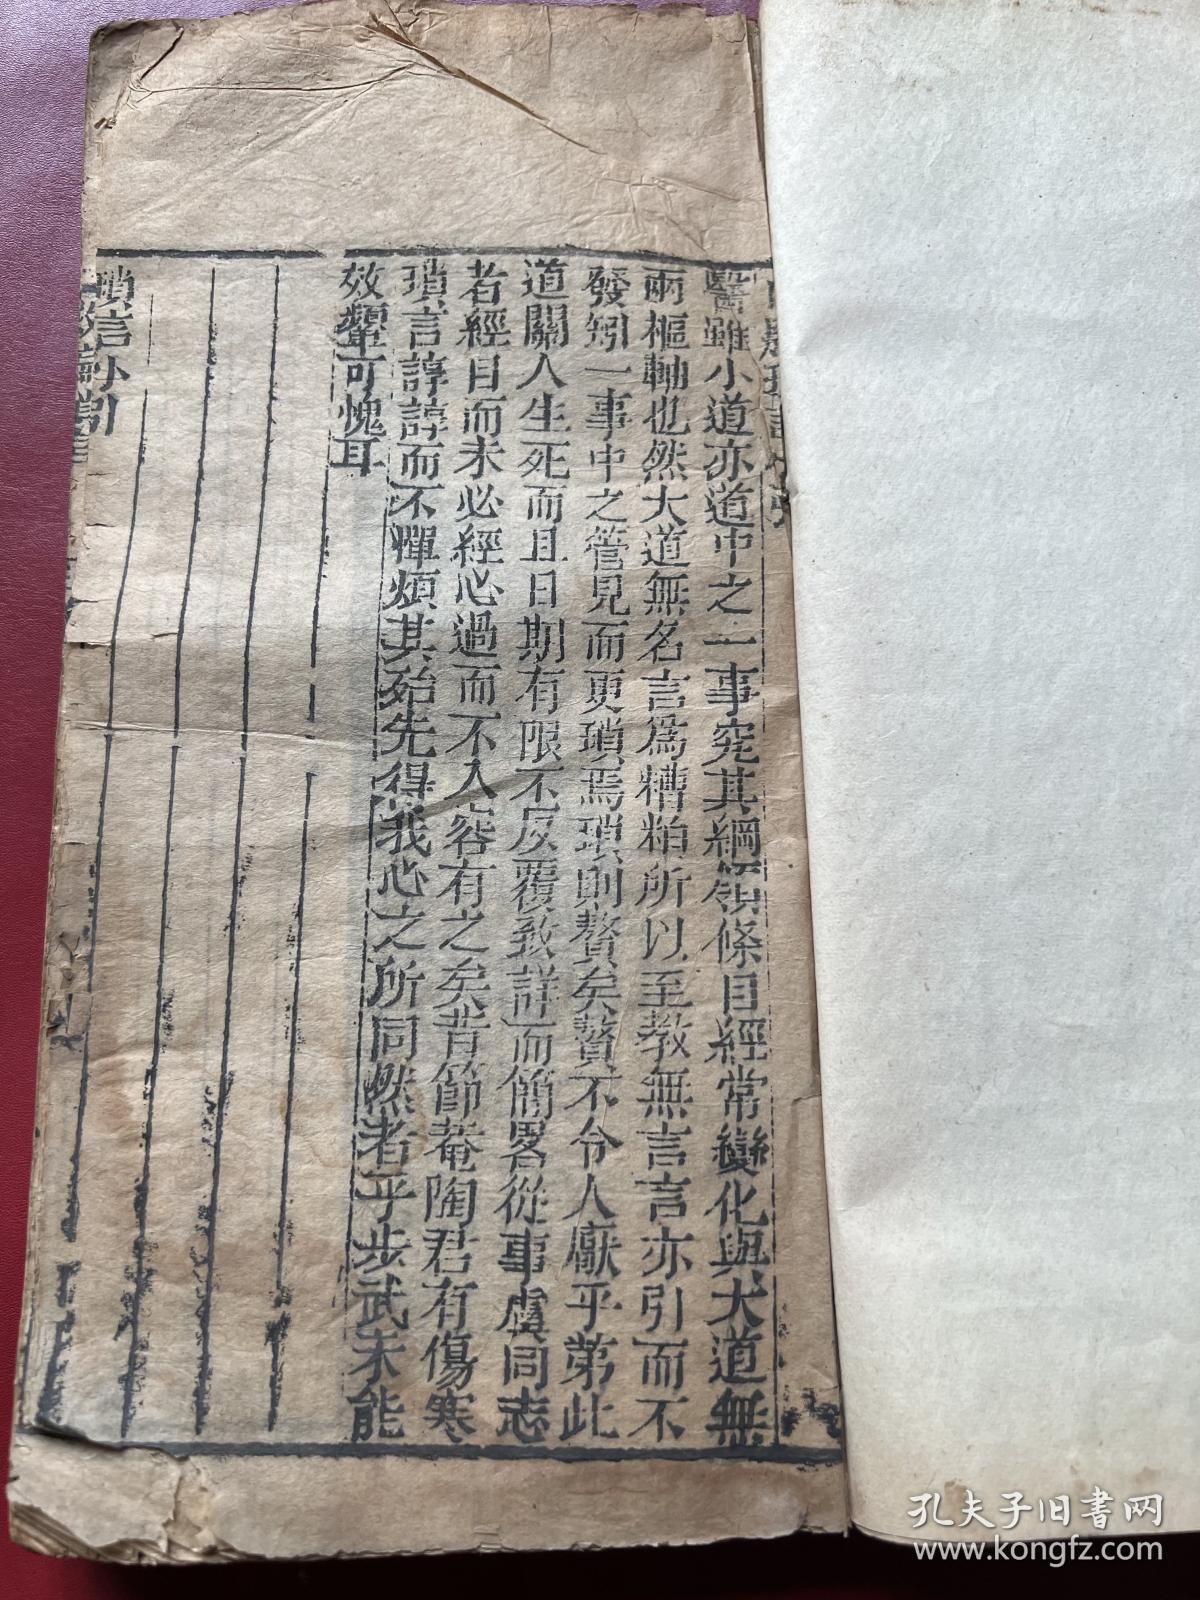 瑣言小引
醫雖小道亦道中之一事究其綱領條目經常變化與大道無
兩樞軸也然大道無名言爲糟粕所以至教無言言亦引而不
發矧一事中之管見而更瑣焉瑣則贅矣贅不令人厭乎第此
道關人生死而且日期有限不反覆致詳而簡畧從事虞同志
者經目而未必經心過而不入容有之矣昔節菴陶君有傷寒
瑣言諄諄而不憚煩其殆先得我心之所同然者乎步武未能
效顰可愧耳
瑣言小引
孔夫子旧书网
www.kongfz.com